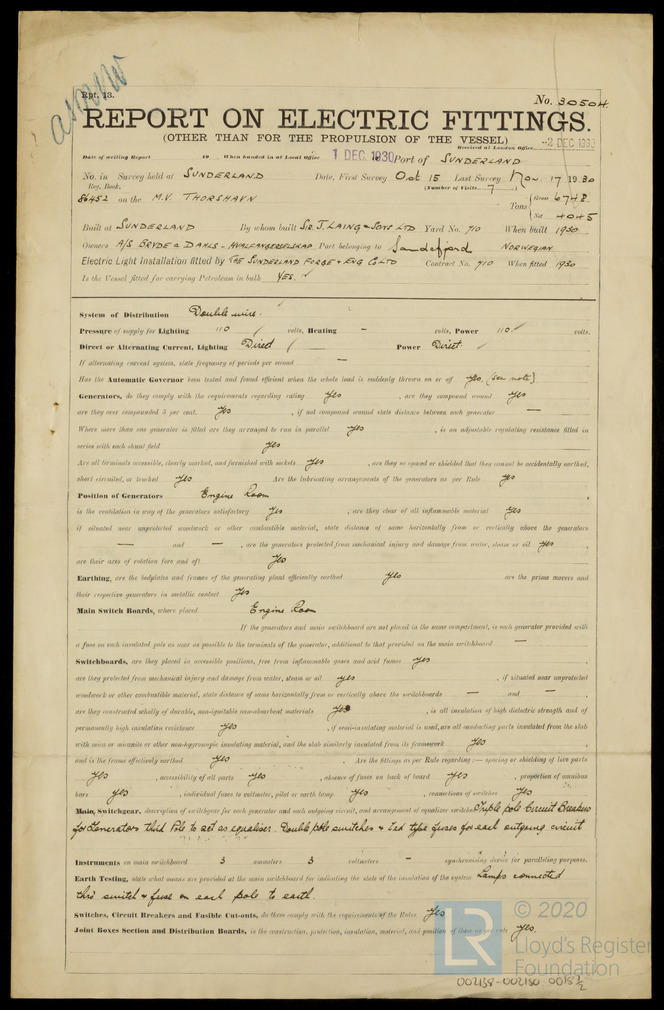 asmew
Rpt. 13.
No. 30504
REPORT ON ELECTRIC FITTINGS.
(OTHER THAN FOR THE PROPULSION OF THE VESSEL)
Received at London Office -2 DEC 1930
Date of writing Report 19 When handed in at Local Office 1 DEC. 1930 Port of SUNDERLAND
No. in Survey held at SUNDERLAND Date, First Survey Oct 15 Last Survey Nov. 17 1930
Reg. Book. (Number of Visits 7)
86452 on the M.V. THORSHAVN Tons { Gross 6748
Net 4045
Built at SUNDERLAND By whom built SIR J. LAING & SONS LTD Yard No. 710 When built 1930
Owners A/S BRYDE & DAHLS - HVALFANGERSELSKAP Port belonging to Sandefjord NORWEGIAN
Electric Light Installation fitted by THE SUNDERLAND FORGE & ENG Co LTD Contract No. 710 When fitted 1930
Is the Vessel fitted for carrying Petroleum in bulk YES.
System of Distribution Double wire.
Pressure of supply for Lighting 110 volts, Heating - volts, Power 110 volts.
Direct or Alternating Current, Lighting Direct Power Direct
If alternating current system, state frequency of periods per second —
Has the Automatic Governor been tested and found efficient when the whole load is suddenly thrown on or off yes. (see note)
Generators, do they comply with the requirements regarding rating yes , are they compound wound yes
are they over compounded 5 per cent. yes , if not compound wound state distance between each generator —
Where more than one generator is fitted are they arranged to run in parallel yes , is an adjustable regulating resistance fitted in
series with each shunt field yes
Are all terminals accessible, clearly marked, and furnished with sockets yes , are they so spaced or shielded that they cannot be accidentally earthed,
short circuited, or touched yes Are the lubricating arrangements of the generators as per Rule yes
Position of Generators Engine Room
is the ventilation in way of the generators satisfactory yes , are they clear of all inflammable material yes
if situated near unprotected woodwork or other combustible material, state distance of same horizontally from or vertically above the generators
— and — , are the generators protected from mechanical injury and damage from water, steam or oil yes ,
are their axes of rotation fore and aft yes
Earthing, are the bedplates and frames of the generating plant efficiently earthed yes are the prime movers and
their respective generators in metallic contact yes
Main Switch Boards, where placed Engine Room
If the generators and main switchboard are not placed in the same compartment, is each generator provided with
a fuse on each insulated pole as near as possible to the terminals of the generator, additional to that provided on the main switchboard —
Switchboards, are they placed in accessible positions, free from inflammable gases and acid fumes yes
are they protected from mechanical injury and damage from water, steam or oil yes , if situated near unprotected
woodwork or other combustible material, state distance of same horizontally from or vertically above the switchboards — and — ,
are they constructed wholly of durable, non-ignitable non-absorbent materials yes , is all insulation of high dielectric strength and of
permanently high insulation resistance yes , if semi-insulating material is used, are all conducting parts insulated from the slab
with mica or micanite or other non-hygroscopic insulating material, and the slab similarly insulated from its framework yes ,
and is the frame effectively earthed yes . Are the fittings as per Rule regarding:— spacing or shielding of live parts
yes , accessibility of all parts yes , absence of fuses on back of board yes , proportion of omnibus
bars yes , individual fuses to voltmeter, pilot or earth lamp yes , connections of switches yes
Main Switchgear, description of switchgear for each generator and each outgoing circuit, and arrangement of equalizer switches Triple pole Circuit Breakers
for Generators third Pole to act as equaliser. Double pole switches & Zed type fuses for each outgoing circuit
Instruments on main switchboard 3 ammeters 3 voltmeters - synchronising device for paralleling purposes.
Earth Testing, state what means are provided at the main switchboard for indicating the state of the insulation of the system Lamps connected
thro' switch & fuse on each pole to earth.
Switches, Circuit Breakers and Fusible Cut-outs, do these comply with the requirements of the Rules yes
Joint Boxes Section and Distribution Boards, is the construction, protection, insulation, material, and position of these as per rule yes.
LR
© 2020
Lloyd's Register
Foundation